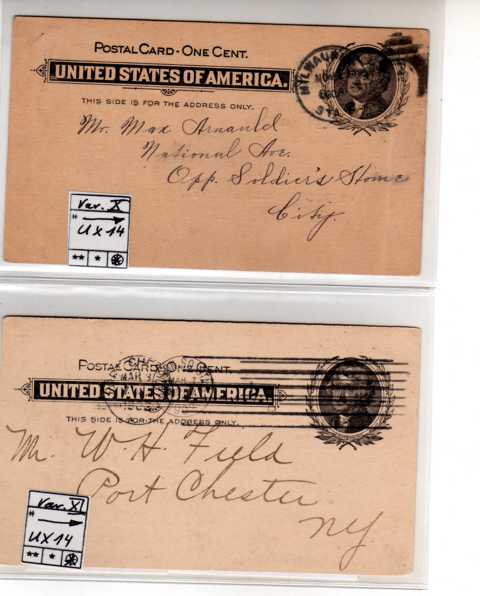 POSTAL CARD - ONE CENT.
UNITED STATES OF AMERICA.
THIS SIDE IS FOR THE ADDRESS ONLY.
MILWAUK
Mr. Max Arnauld
National Ave.
Opp. Soldier's Home
City.
Var. X
UX14
** * 
POSTAL CARD - ONE CENT.
UNITED STATES OF AMERICA.
THIS SIDE IS FOR THE ADDRESS ONLY.
MAR
Mr. W. H. Field
Port Chester
NY
Var. XI
UX14
** *